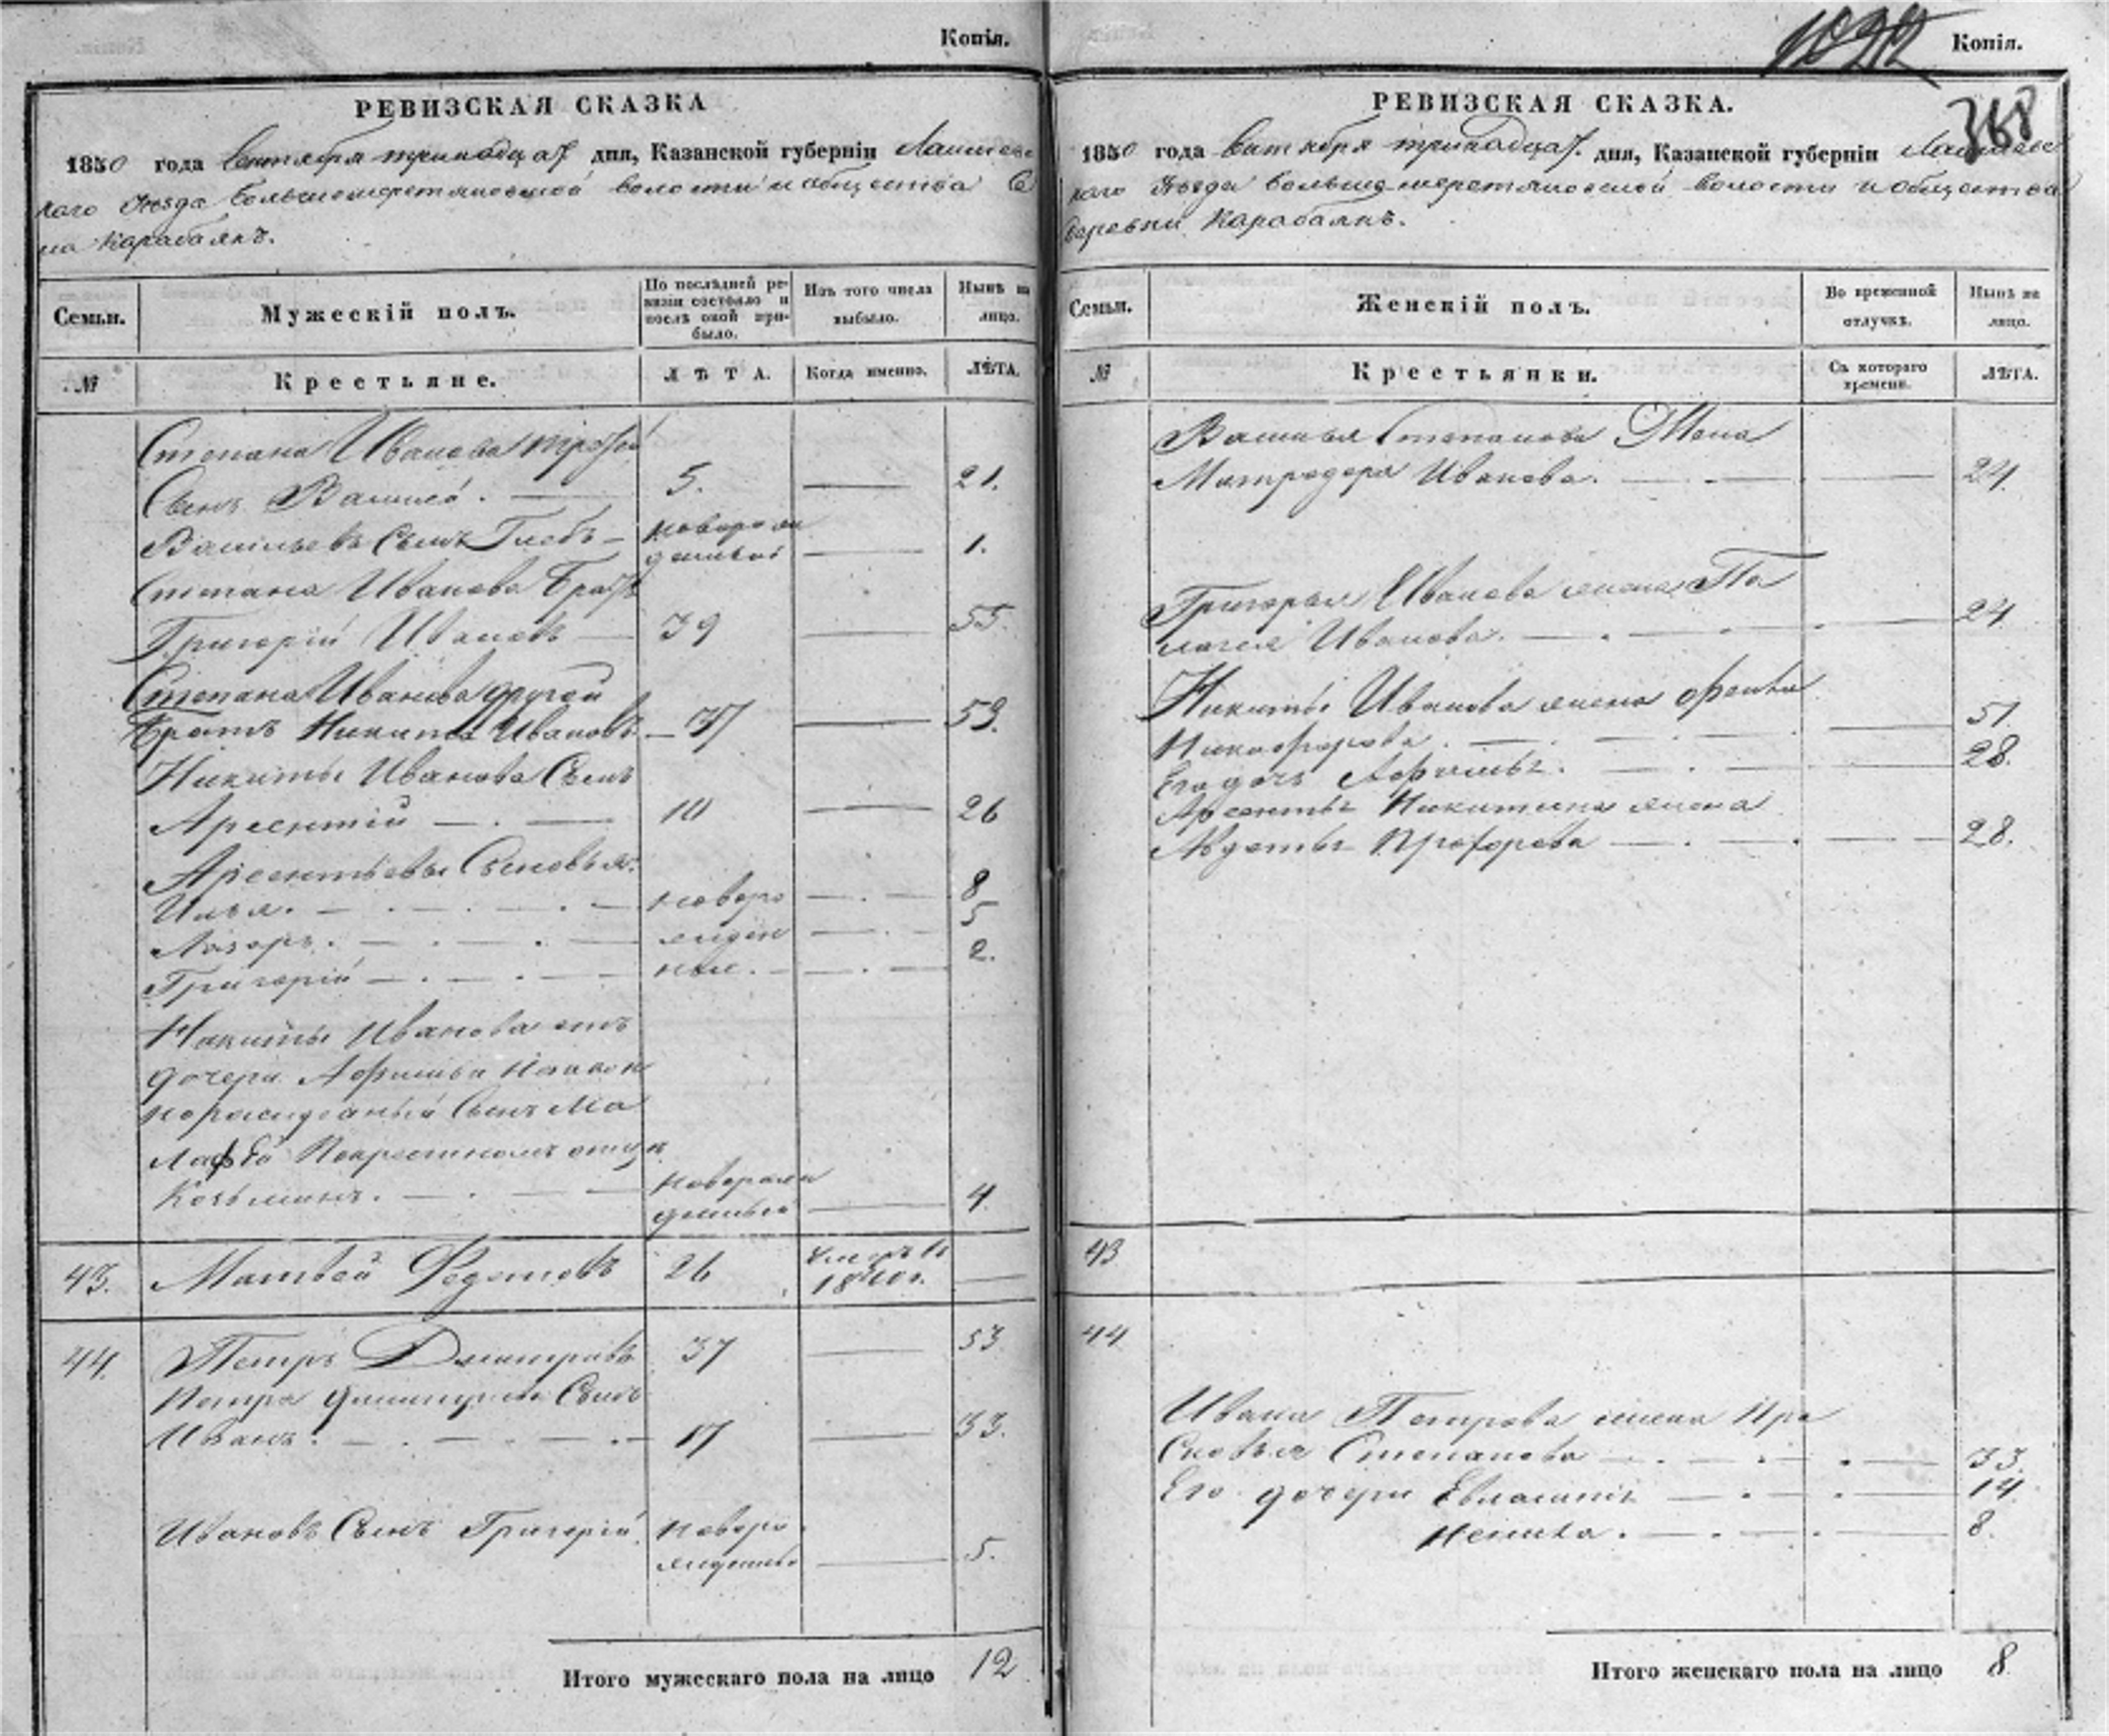 Копія.
РЕВИЗСКАЯ СКАЗКА
1850 года Сентября тринадцат дня, Казанской губерніи Лаишевс
каго Уезда волости и общества Се
ла Карабаянъ.
Семьи.
Мужескій полъ.
По послѣдней ре-
визіи состояло и
послѣ оной при-
было.
Изъ того числа
выбыло.
Нынѣ на
лицо.
№
Крестьяне.
ЛѢТА.
Когда именно.
ЛѢТА.
Степана Иванова третій
Сынъ Василей. 5. 21.
Васильевъ Сынъ Глебъ новорож
денный 1.
Степана Иванова Братъ
Григорій Ивановъ 39 55.
Степана Иванова другой
Братъ Никита Ивановъ 37 53.
Никиты Иванова Сынъ
Арсентій 10 26
Арсентьевы Сыновья:
Илья. новоро 8
Лазарь. жден 5
Григорій ные. 2.
Никиты Иванова отъ
дочери Афимьи незакон
норожденный Сынъ Ма
по крестному отцу
Козьминъ. новорож
денный 4.
43. Матвей Федотовъ 26 умеръ въ
1840 г.
44. Петръ Дмитріевъ 37 53
Петра Дмитріева Сынъ
Иванъ. 17 33.
Ивановъ Сынъ Григорій. новоро
жденный 5.
Итого мужескаго пола на лицо 12
1022
Копія.
368
РЕВИЗСКАЯ СКАЗКА.
1850 года Сентября тринадцат. дня, Казанской губерніи Лаишевс
каго Уезда волости и общества
деревни Карабаянъ.
Семьи.
Женскій полъ.
Во временной
отлучкѣ.
Нынѣ на
лицо.
№
Крестьянки.
Съ котораго
времени.
ЛѢТА.
Василья Степанова Жена
Матредора Иванова. 24.
Григорья Иванова жена Пе
лагея Иванова. 24
Никиты Иванова жена
Никифорова. 51
Его дочь Афимья. 28.
Арсентья Никитина жена
Авдотья Прохорова 28.
43
44
Ивана Петрова жена Пра
сковья Степанова 33.
Его дочери 14
8.
Итого женскаго пола на лицо 8